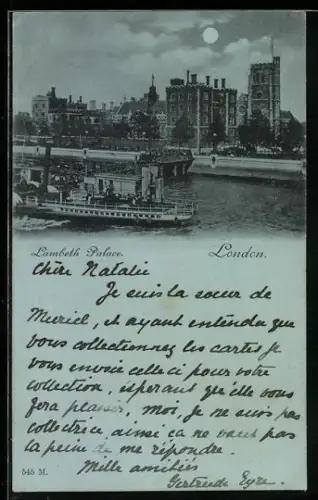 Lambeth Palace. London.
Chère Natalie
Je suis la soeur de
Muriel, et ayant entendu que
vous collectionnez les cartes je
vous envoie celle ci pour votre
collection, espérant qu'elle vous
fera plaisir, moi, je ne suis pas
collectrice ainsi ca ne vaut pas
la peine de me répondre.
Mille amitiés
Gertrude Eyre.
545 M.